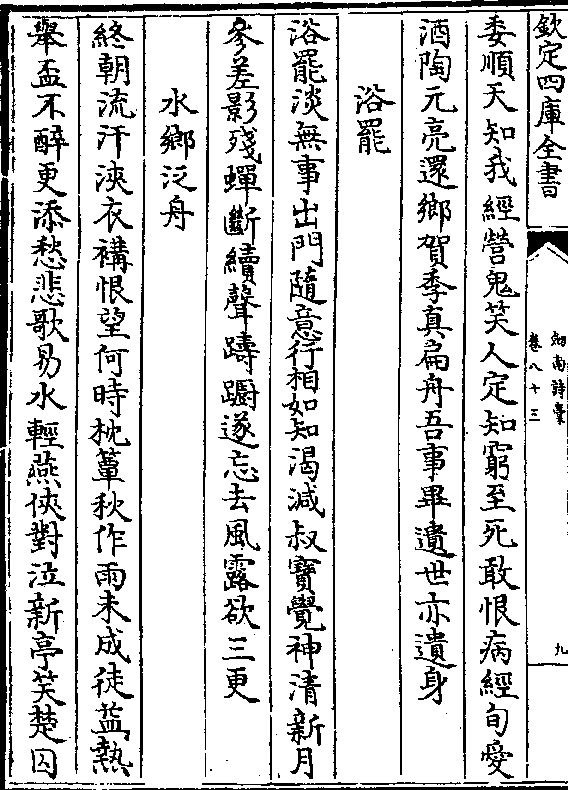 欽定四庫全書
劍南詩稾
卷八十三
九
委順天知我經營鬼笑人定知窮至死敢恨病經旬愛
酒陶元亮還鄉賀季真扁舟吾事畢遺世亦遺身
浴罷
浴罷淡無事出門隨意行相如知渴減叔寶覺神清新月
參差影殘蟬斷續聲躊躕遂忘去風露欲三更
水鄉泛舟
終朝流汗浹衣褠悵望何時枕簟秋作雨未成徒益熱
舉盃不醉更添愁悲歌易水輕燕俠對泣新亭笑楚囚